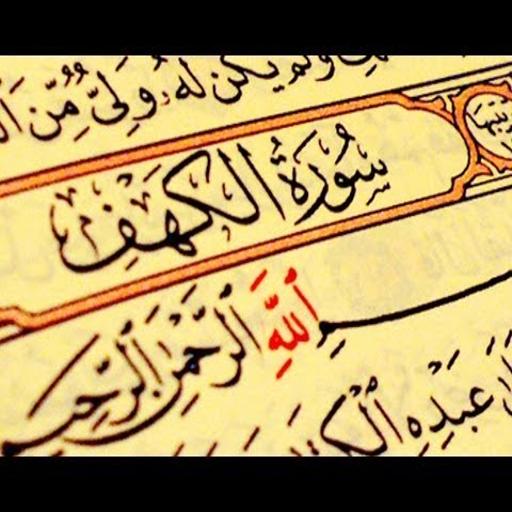 وَلَمْ يَكُن لَّهُۥ وَلِىٌّ مِّنَ
سُورَةُ الكَهْفِ
ٱللَّهِ ٱلرَّحْمَٰنِ ٱلرَّحِيمِ
عَبْدِهِ ٱلْكِتَٰبَ